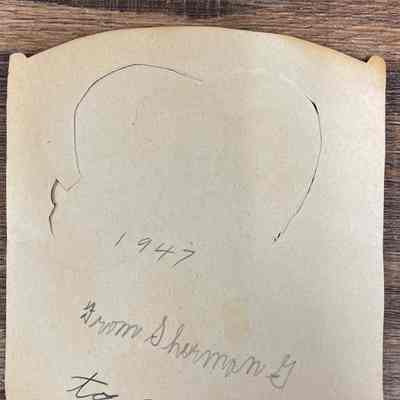 1947
From Sherman G
to